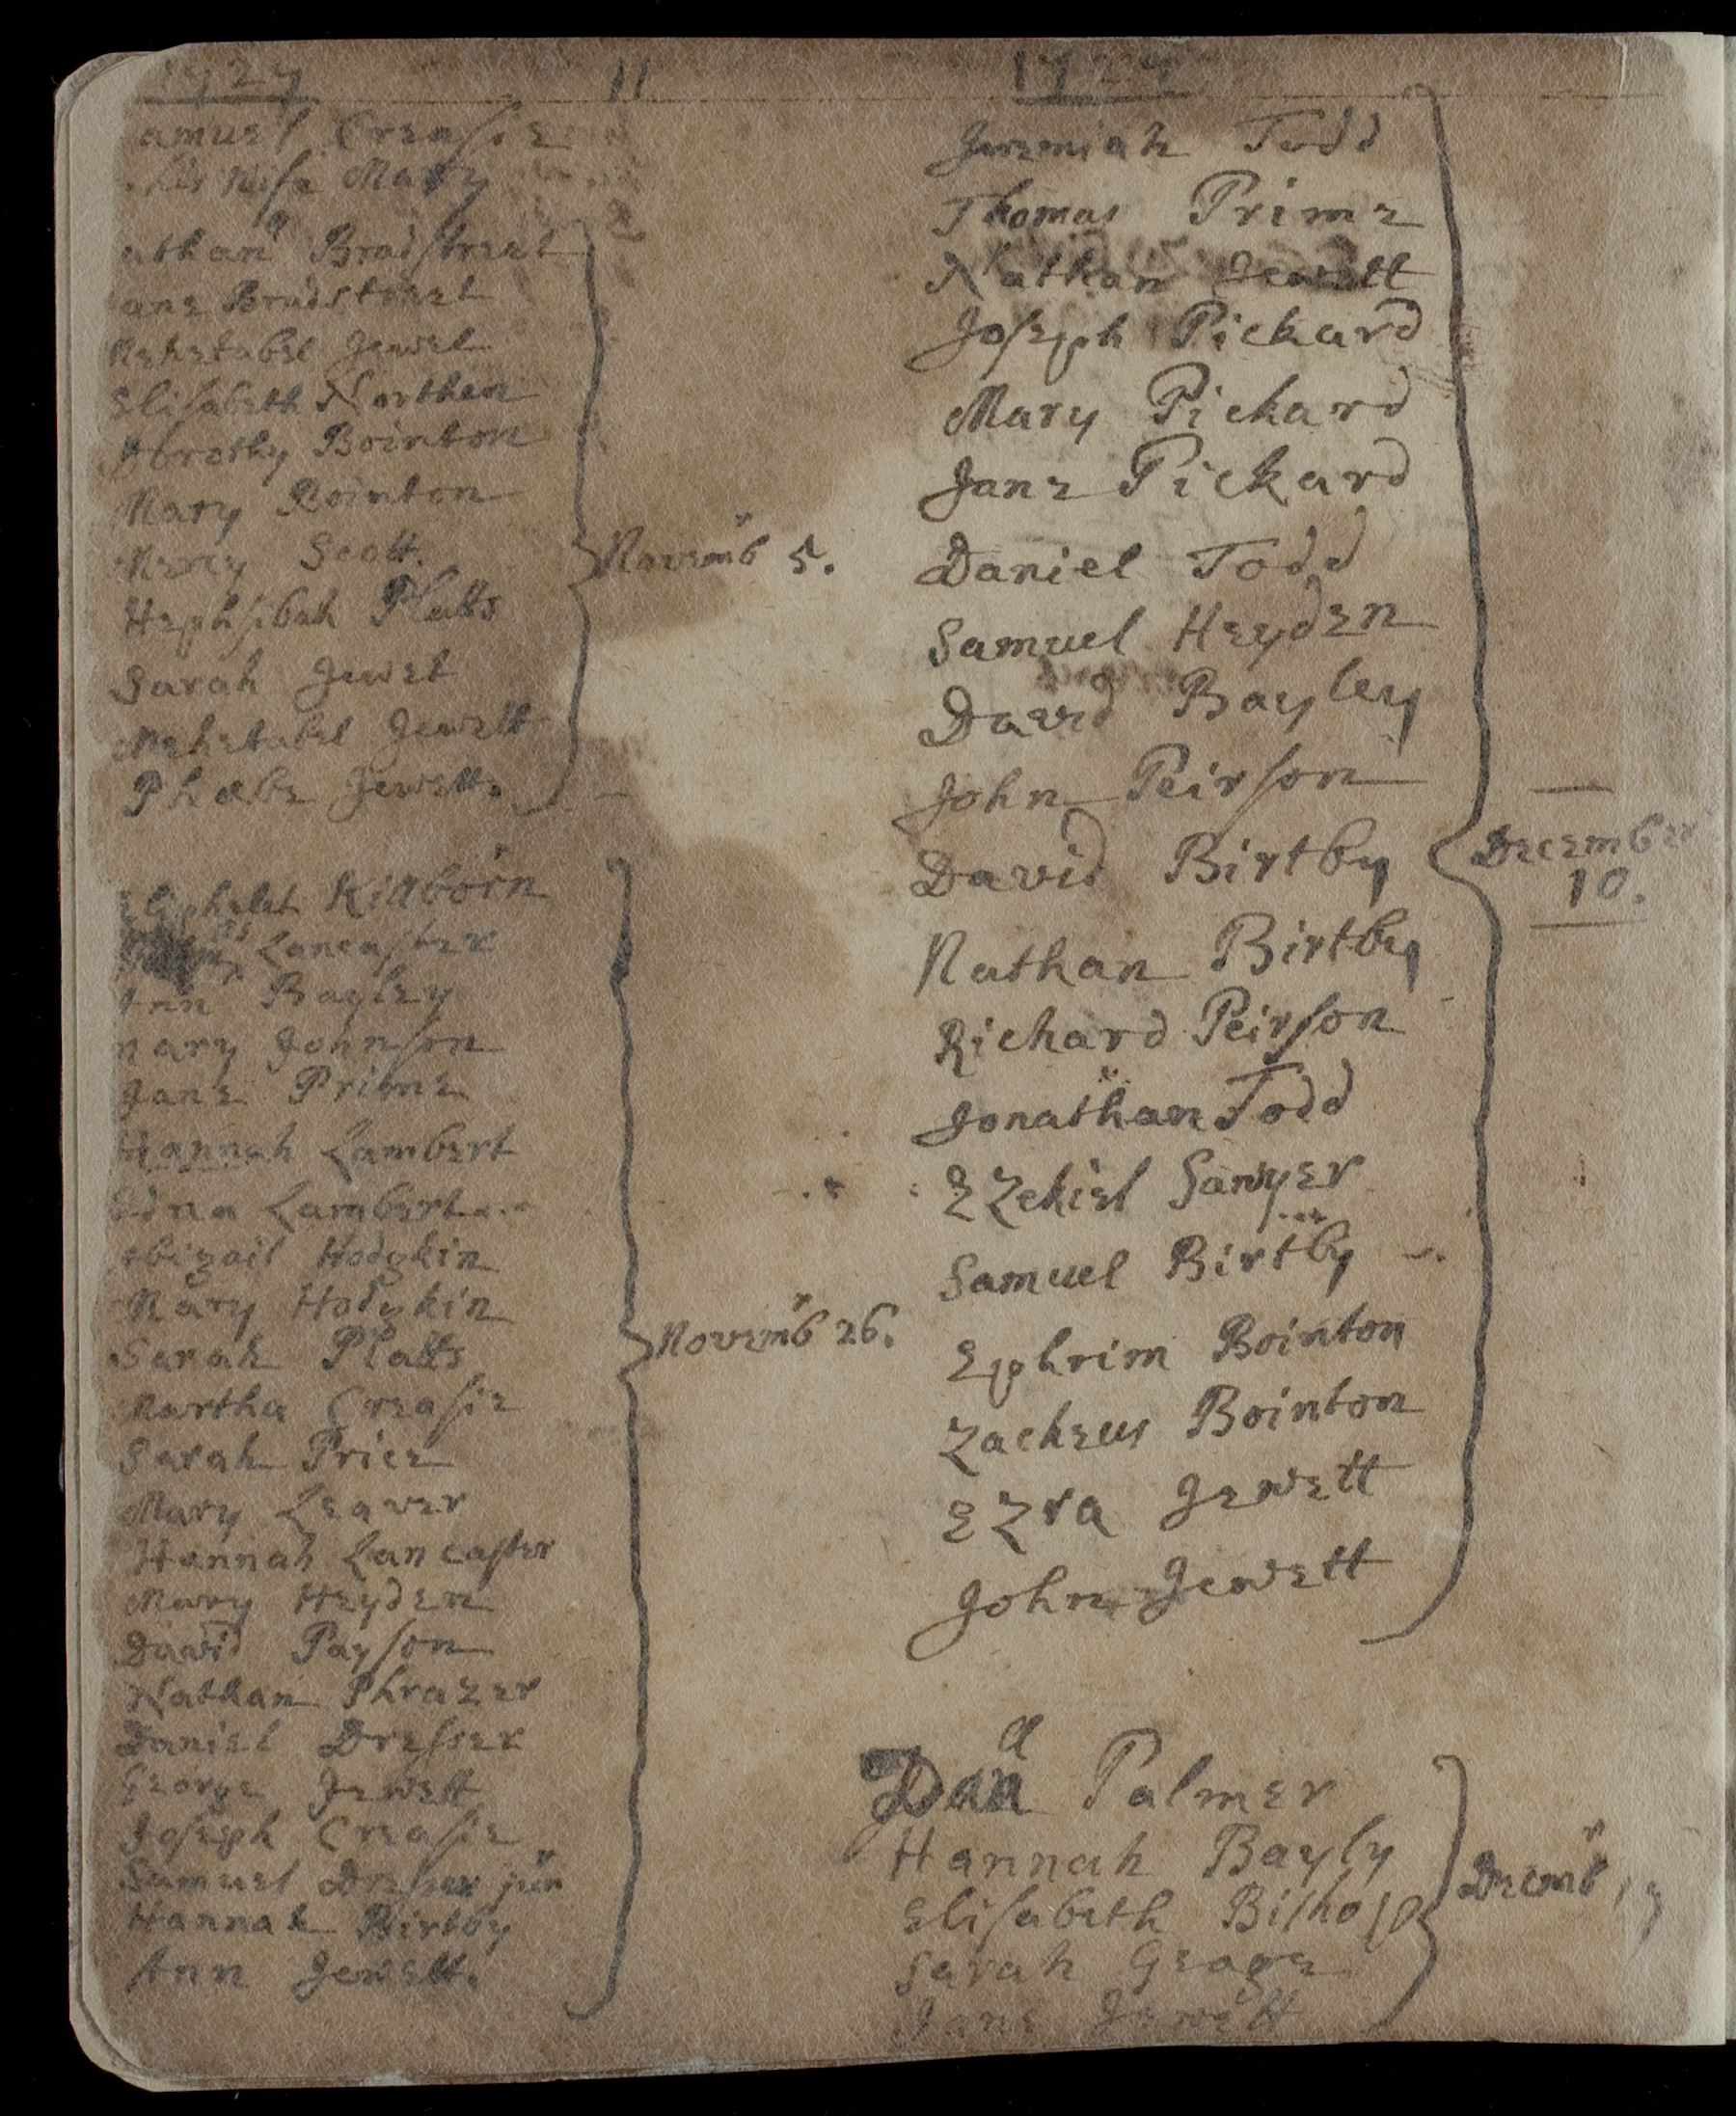 1727
11
amuel Creasie
his Wife Mary
athan Bradstreet
ane Bradstreet
Mehetabel Jewet
Elisabeth Northen
Dorothy Bointon
Mary Bointon
Mercy Scott.
Hephsibah Platts
Sarah Jewet
Mehetabel Jewett
Phœbe Jewett.
Novemb^r 5.
Eliphelet Killborn
Lancaster
Ann Bayley
mary Johnson
Jane Prime
Hannah Lambert
Edna Lambert
Abigail Hodgkin
Mary Hodgkin
Sarah Platts
Martha Creasie
Sarah Price
Mary Leaver
Hannah Lancaster
Mary Heyden
David Payson
Nathan Phrazer
Daniel Dresser
George Jewett
Joseph Creasie
Samuel Dresser jun^r
Hannah Birtby
Ann Jewett.
Novemb^r 26.
1727
Jeremiah Todd
Thomas Prime
Nathan Jewett
Joseph Pickard
Mary Pickard
Jane Pickard
Daniel Todd
Samuel Heyden
David Bayley
John Peirson
David Birtby
Nathan Birtby
Richard Peirson
Jonathan Todd
EZekiel Sawyer
Samuel Birtby
Ephrim Bointon
Zacheus Bointon
EZra Jewett
John Jewett
December
10.
Palmer
Hannah Bayly
Elisabeth Bishop
Sarah Geage
Jane Jewett
Decmb^r